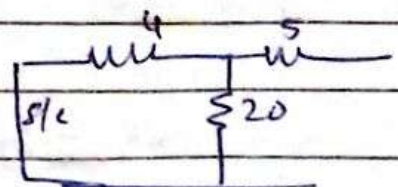 4 5
s/c 20